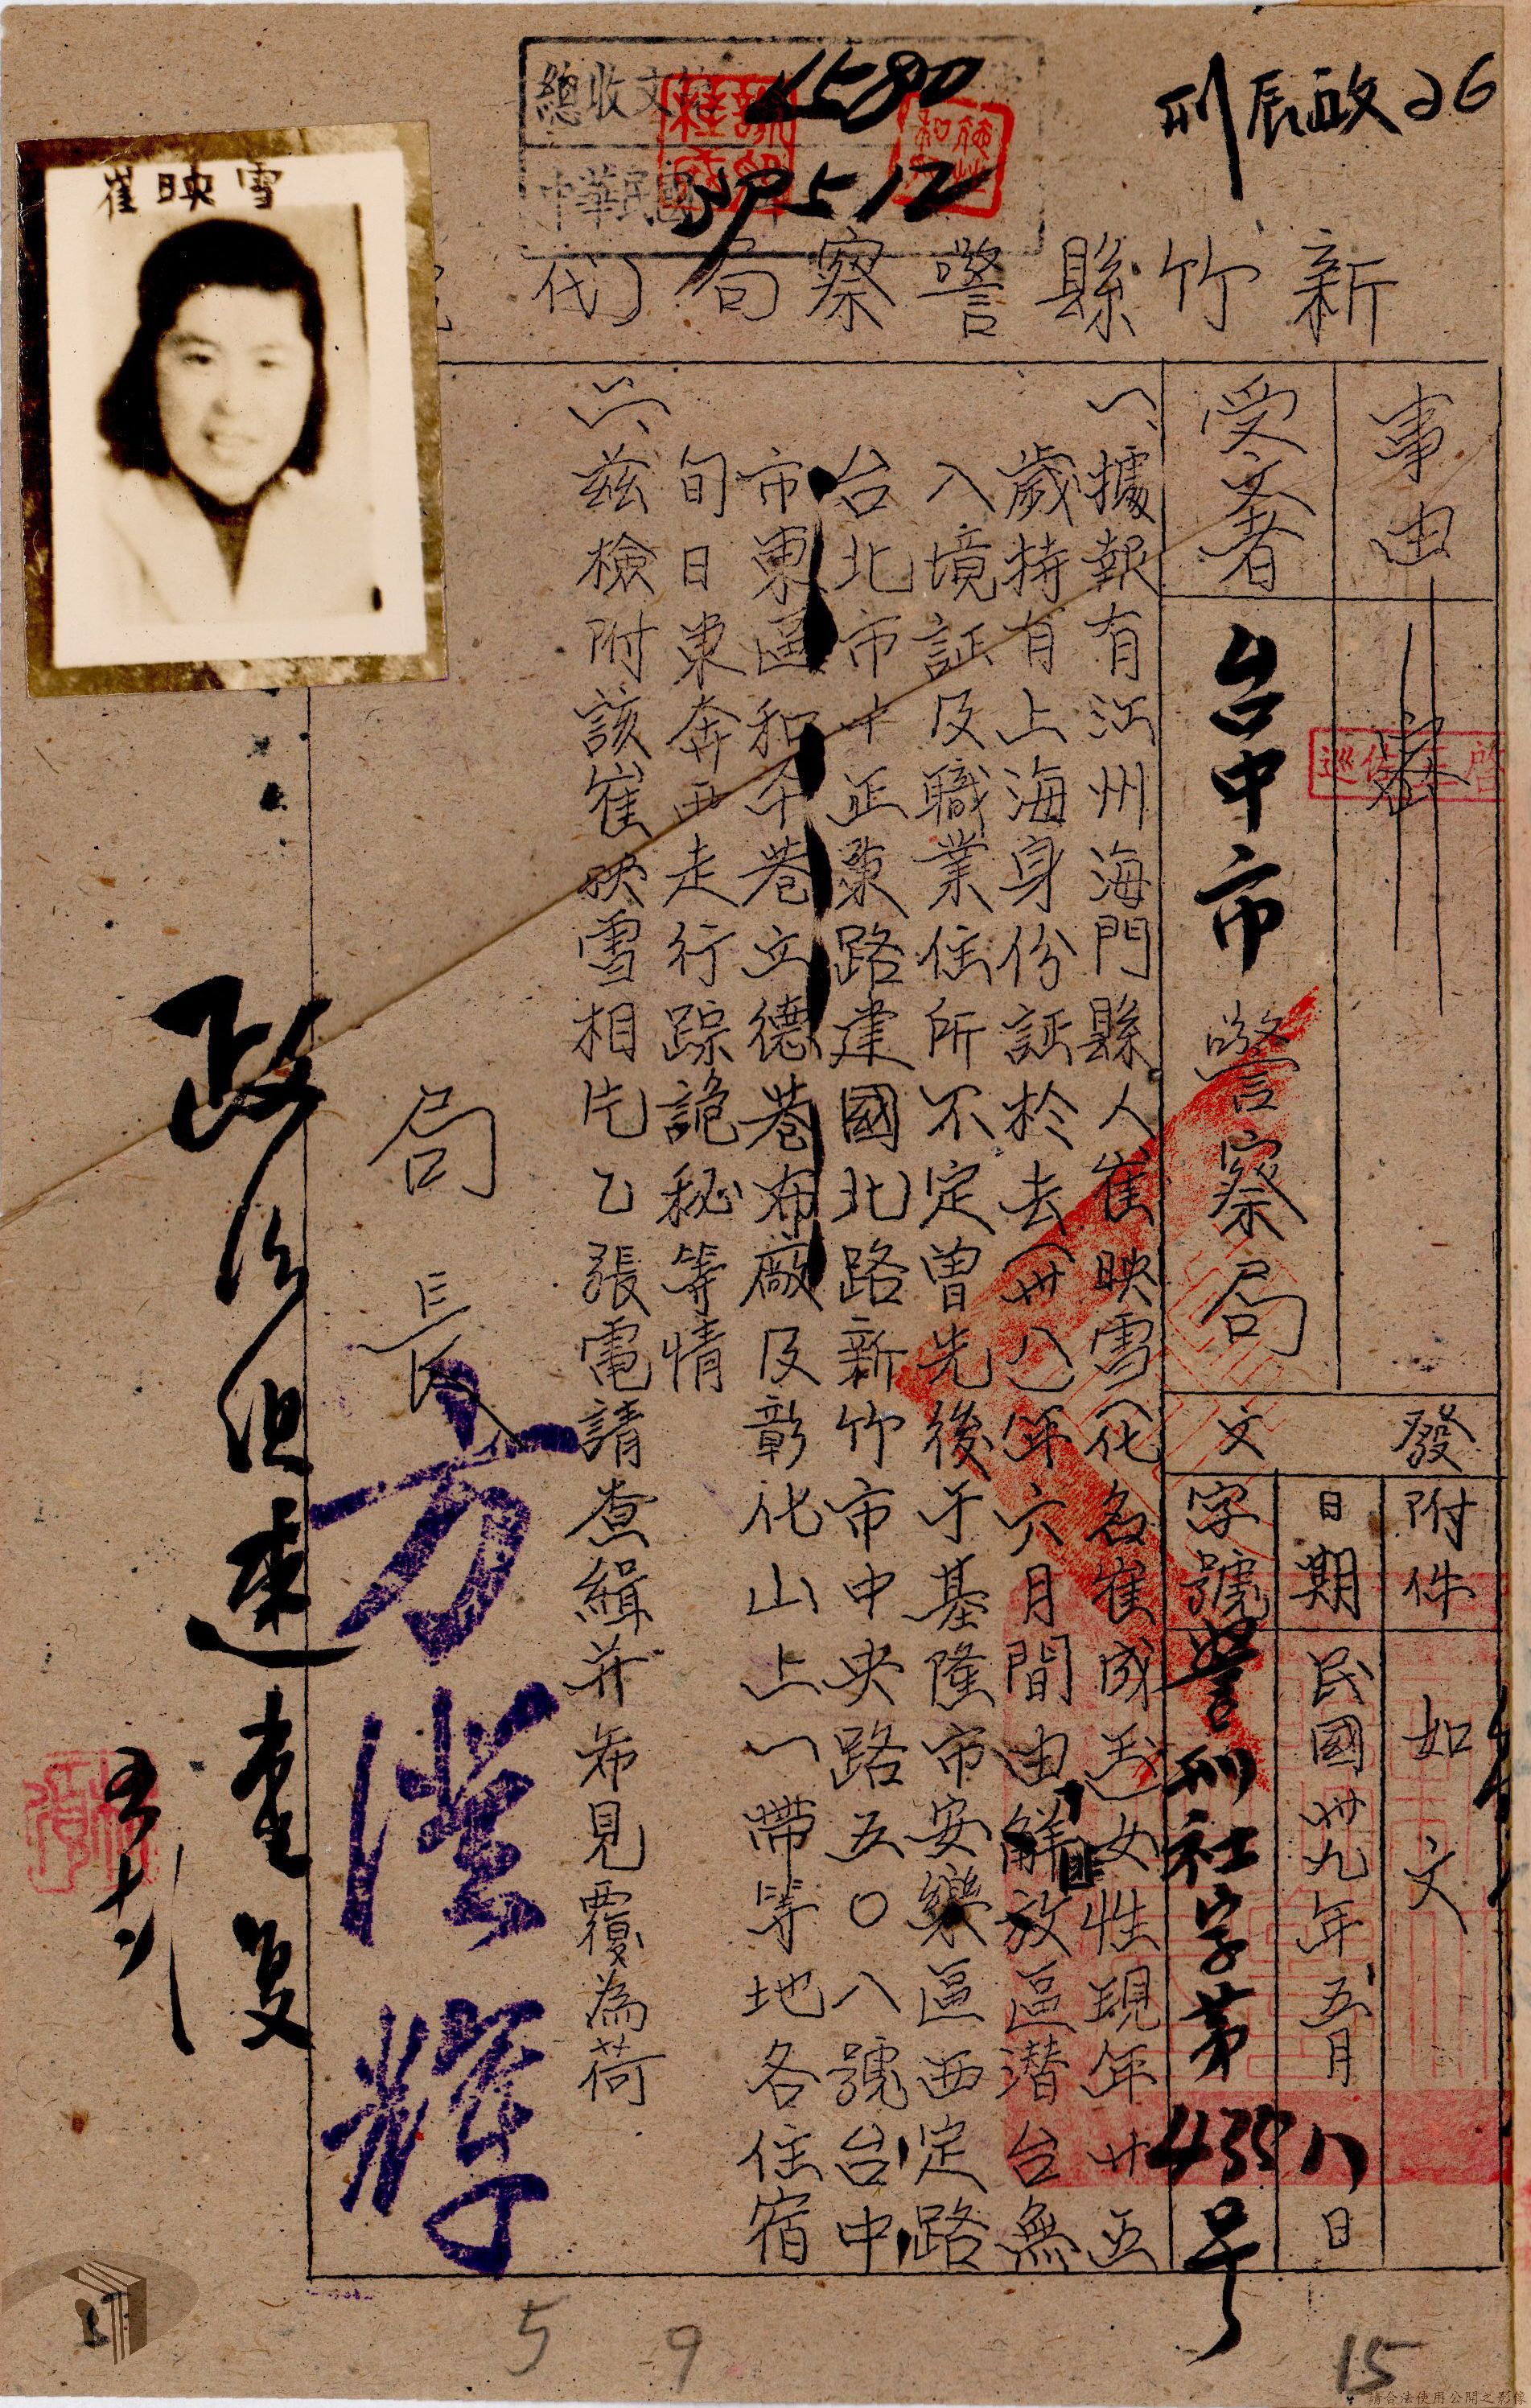 刑辰政26
總收文
1580
中華民國
39 5 12
崔映雪
新竹縣警察局(代)
事由
受文者
台中市警察局
發文
附件
如文
日期
民國卅九年五月八日
字號
警刑社字第435号
一、據報有江州海門縣人崔映雪(化名崔成
女性現年廿五
歲持有上海身份証於去(卅八)年六月間由解放區潛台無
匪
入境証及職業住所不定曾先後于基隆市安樂區西定路
台北市中正東路建國北路新竹市中央路五〇八號台中
市東區和平巷立德巷布廠及彰化山上一帶等地各住宿
旬日東奔西走行踪詭秘等情
二、茲檢附該崔映雪相片乙張電請查緝并希見覆為荷
局長
方濙耀
速查复
5 9
15
請合法使用公開之影像